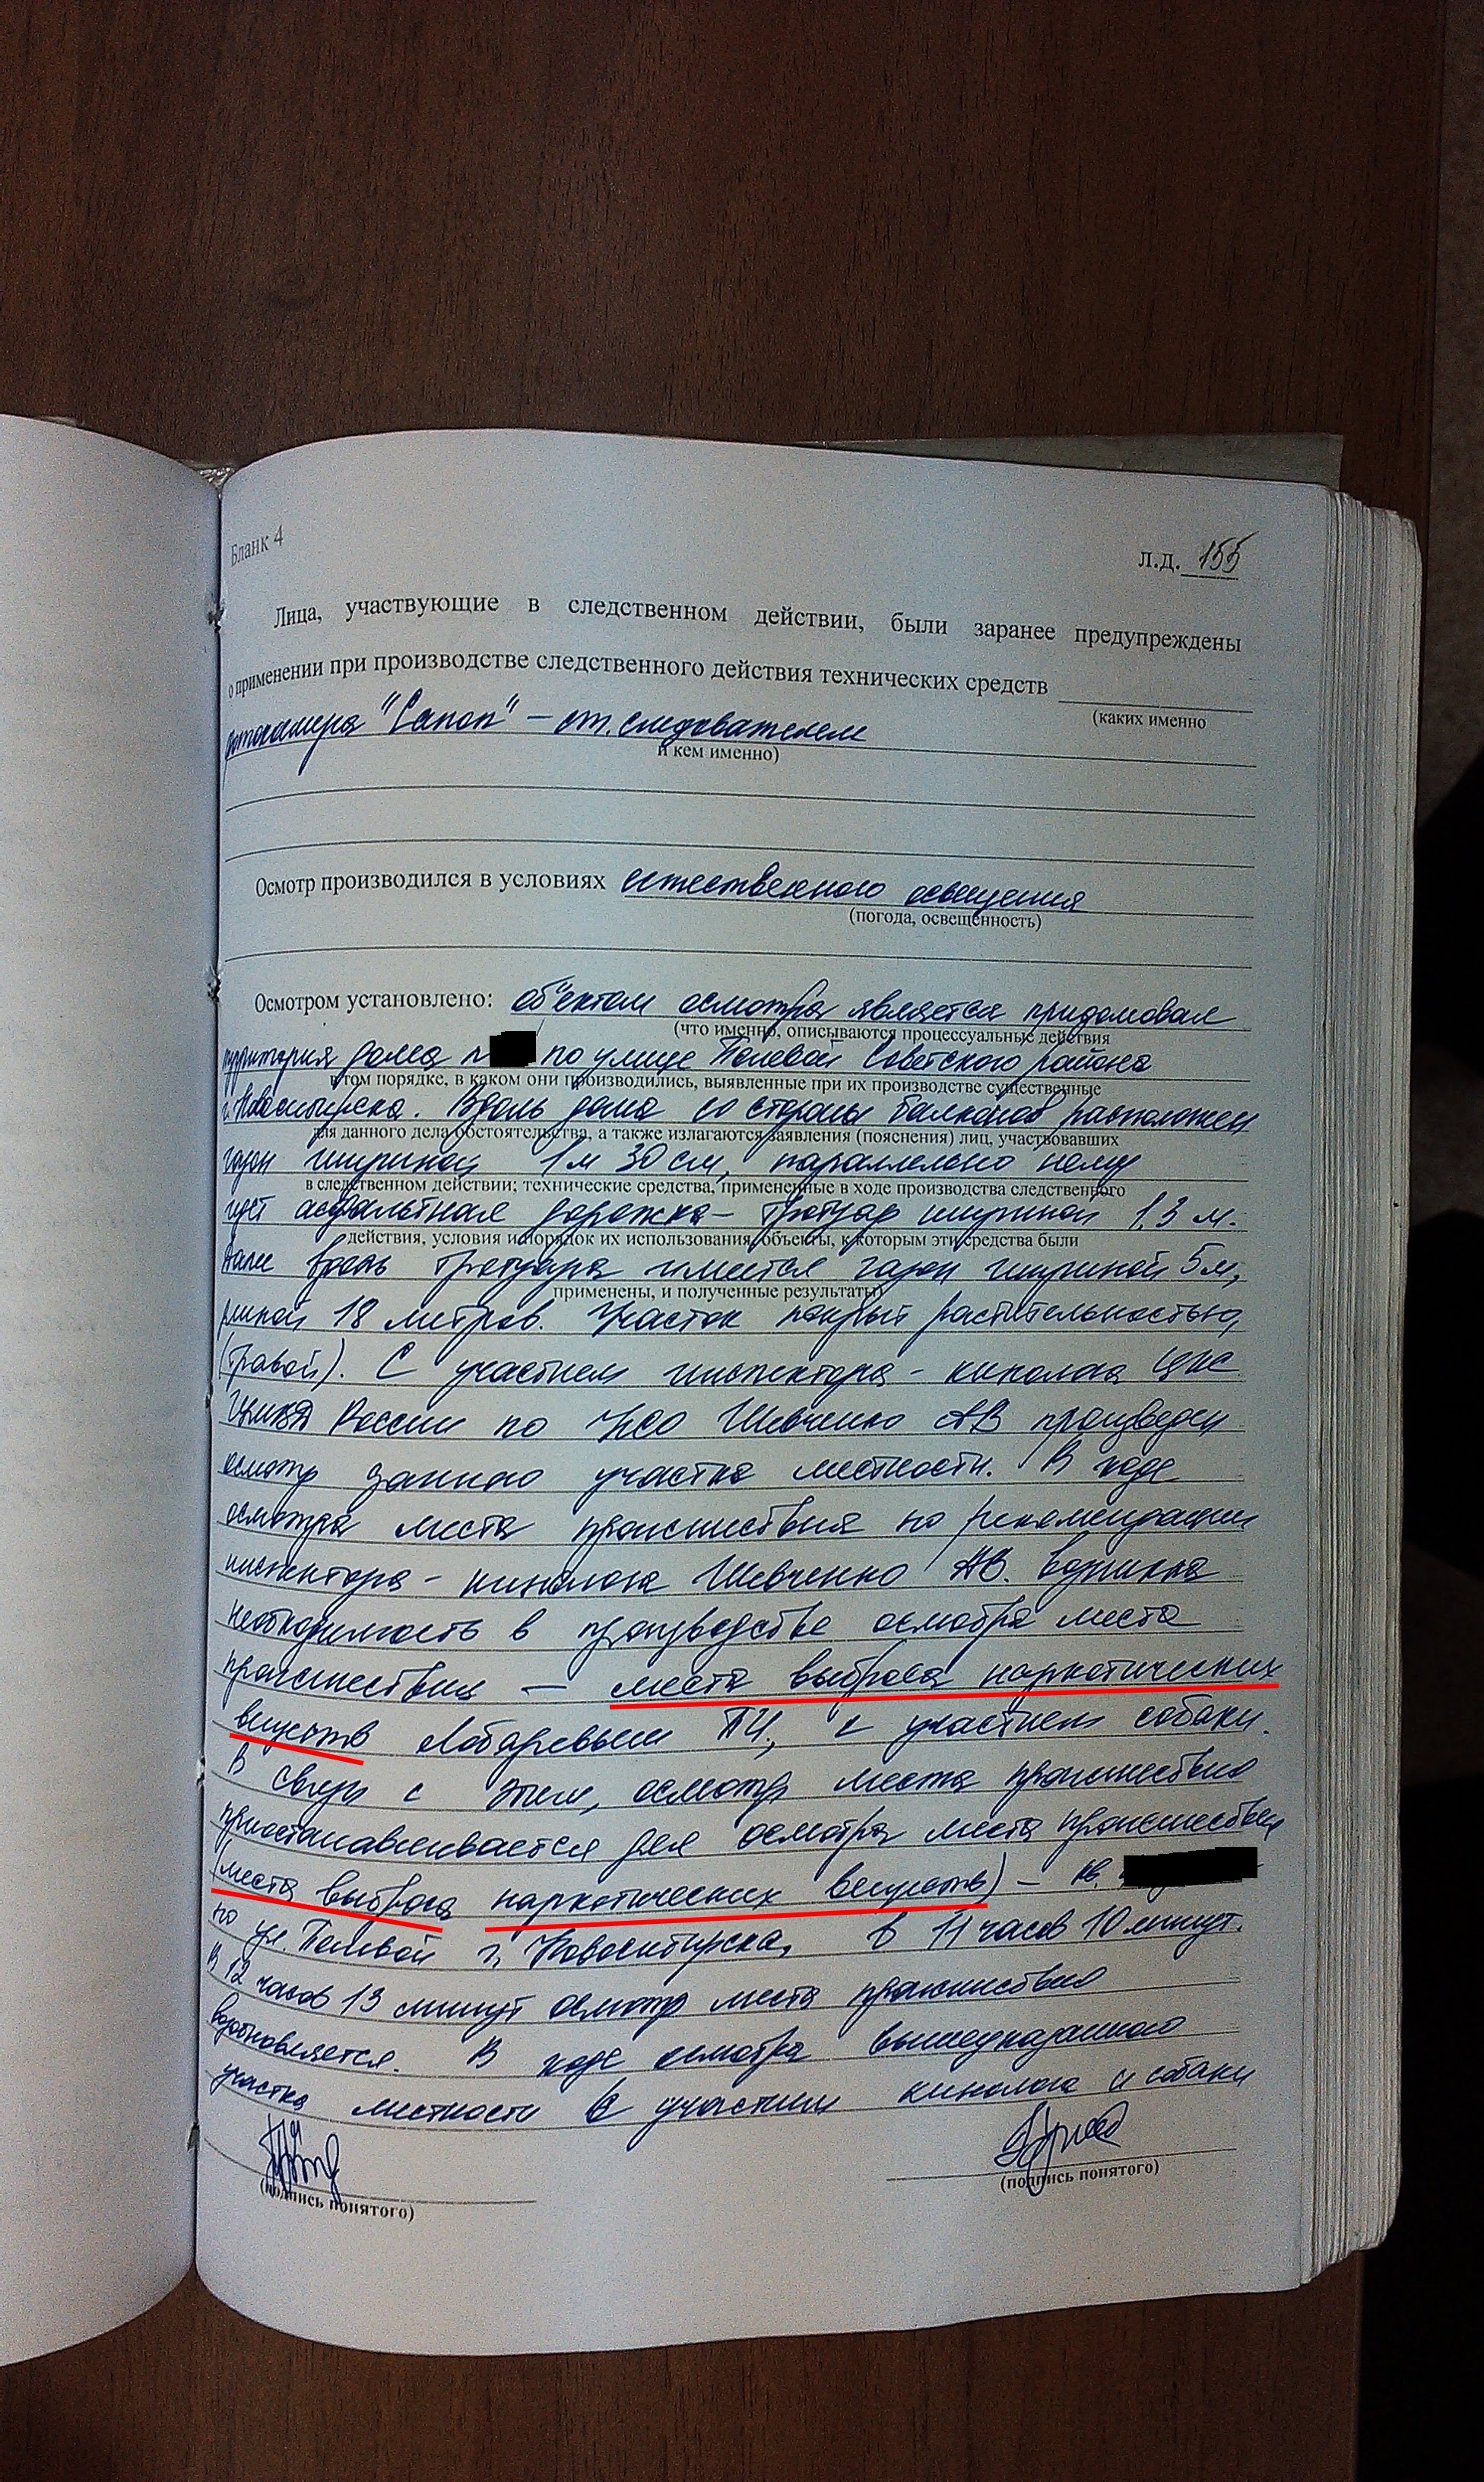 Бланк 4
Л.Д. 155
Лица, участвующие в следственном действии, были заранее предупреждены
о применении при производстве следственного действия технических средств
(каких именно
фотокамера "Canon" – ст. следователем
и кем именно)
Осмотр производился в условиях естественного освещения
(погода, освещённость)
Осмотром установлено: объектом осмотра является придомовая
(что именно, описываются процессуальные действия
территория дома по улице Полевой Советского района
в том порядке, в каком они производились, выявленные при их производстве существенные
г. Новосибирска. Вдоль дома со стороны балконов расположен
для данного дела обстоятельства, а также излагаются заявления (пояснения) лиц, участвовавших
газон шириной 1 м 30 см, параллельно нему
в следственном действии; технические средства, примененные в ходе производства следственного
идет асфальтная дорожка – тротуар шириной 1,3 м.
действия, условия и порядок их использования, объекты, к которым эти средства были
Далее вдоль тротуара имеется газон шириной 5 м,
применены, и полученные результаты)
длиной 18 метров. Участок покрыт растительностью,
(травой). С участием инспектора - кинолога ЦКС
России по НСО Шевченко АВ произведен
осмотр данного участка местности. В ходе
осмотра места происшествия по рекомендации
инспектора - кинолога Шевченко АВ. возникла
необходимость в производстве осмотра места
происшествия – места выброса наркотических
веществ Лобаревым П.И., с участием собаки.
В связи с этим, осмотр места происшествия
приостанавливается для осмотра места происшествия
(места выброса наркотических веществ) – кв.
по ул. Полевой г. Новосибирска, в 11 часов 10 минут.
В 12 часов 13 минут осмотр места происшествия
возобновляется. В ходе осмотра вышеуказанного
участка местности с участием кинолога и собаки
(подпись понятого)
(подпись понятого)